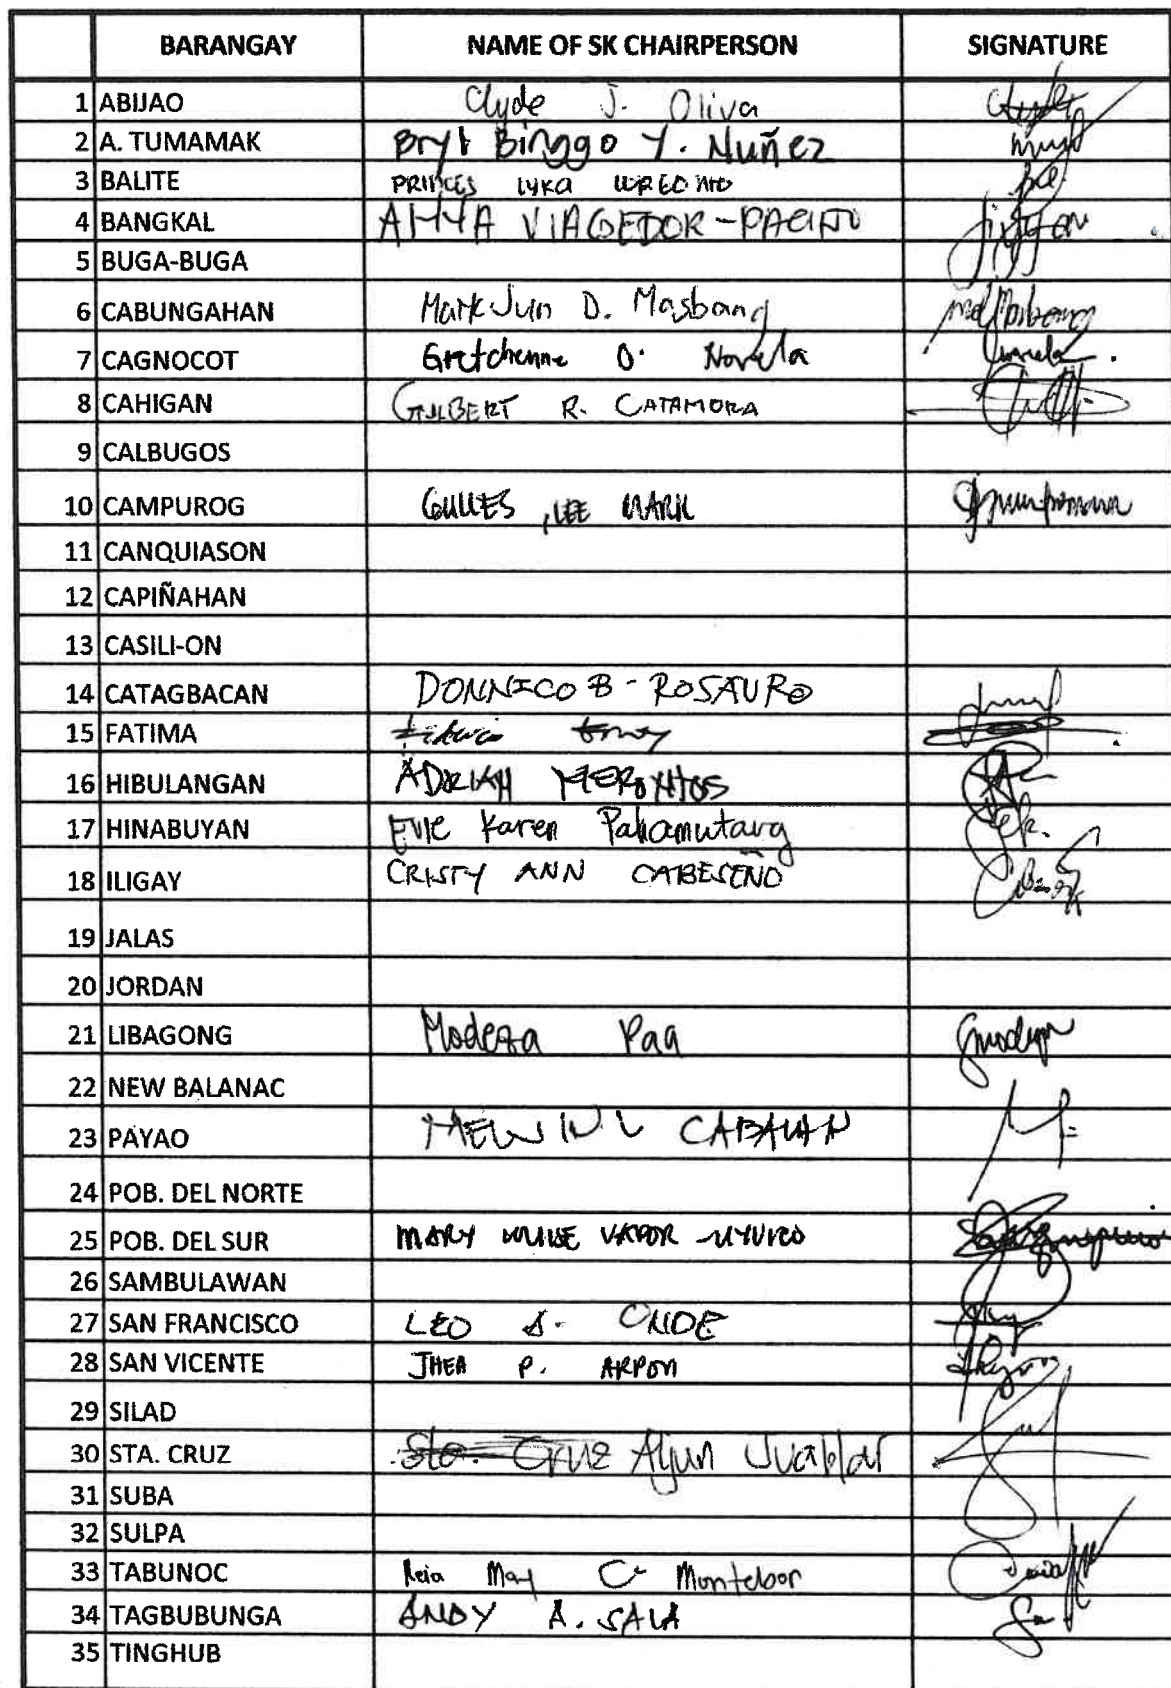 BARANGAY NAME OF SK CHAIRPERSON SIGNATURE
1 ABIJAO Clyde J. Oliva
2 A. TUMAMAK Bryt Binggo Y. Nuñez
3 BALITE PRINCES LYKA
4 BANGKAL VIAGEDOR-PACINTO
5 BUGA-BUGA
6 CABUNGAHAN Mark Jun D. Masbang
7 CAGNOCOT Gretchenne O. Novela
8 CAHIGAN GILBERT R. CATAMORA
9 CALBUGOS
10 CAMPUROG GULLES, LEE MARK
11 CANQUIASON
12 CAPIÑAHAN
13 CASILI-ON
14 CATAGBACAN DONNICO B - ROSAURO
15 FATIMA
16 HIBULANGAN ADRIAN
17 HINABUYAN EVIE Karen Pahamutang
18 ILIGAY CRISTY ANN CABESEÑO
19 JALAS
20 JORDAN
21 LIBAGONG Modesta Paa
22 NEW BALANAC
23 PAYAO MELVIN L CABALAN
24 POB. DEL NORTE
25 POB. DEL SUR MARY VAPOR
26 SAMBULAWAN
27 SAN FRANCISCO LEO S. ONDE
28 SAN VICENTE JHEA P. ARPON
29 SILAD
30 STA. CRUZ Sta. Cruz Aljun
31 SUBA
32 SULPA
33 TABUNOC Reia May C. Montebor
34 TAGBUBUNGA ANDY A. SALA
35 TINGHUB